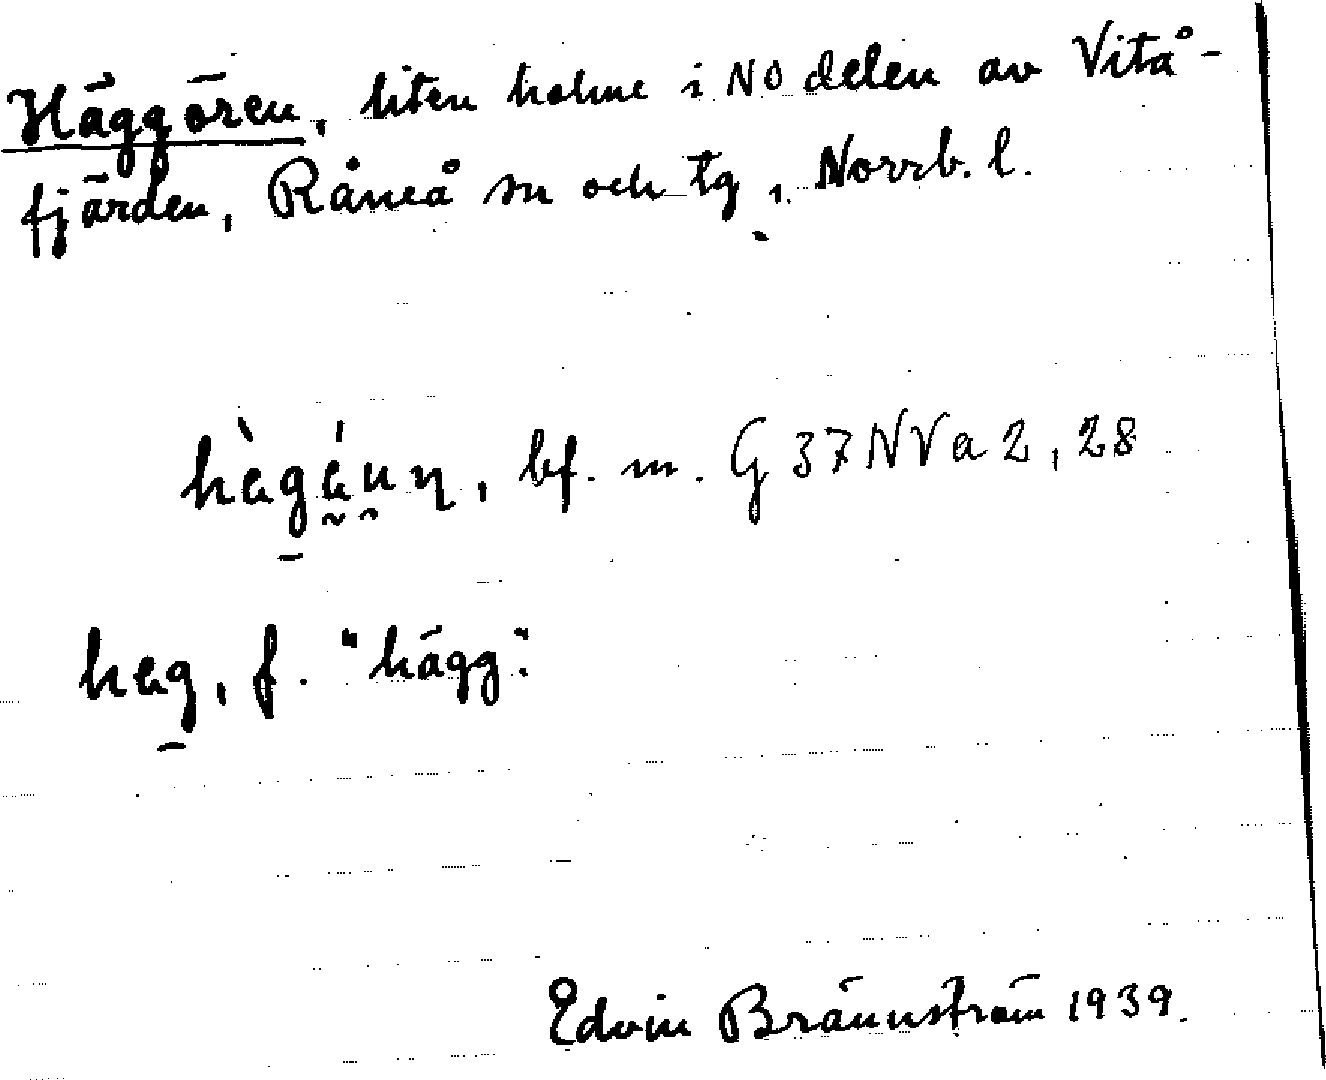 Häggören, liten holme i NO delen av Vitå-
fjärden, Råneå sn och tg, Norrb. l.
bf. m. G 37 NV a 2, 28
hag, f. "hägg".
Edvin Brännström 1939.